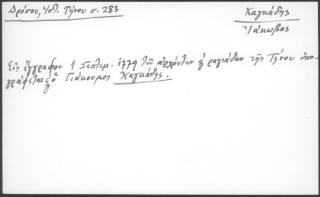 Δρόσου, Ἱστ. Τήνου σ. 283
Καγκάδης
Ἰάκωβος
Εἰς ἔγγραφον 1 Σεπτεμ. 1779 τῶν ἀρχόντων ἢ ρογιάδων τῆς Τήνου ὑπο-
γράφεται ὁ Γιάκουμος Καγκάδης.